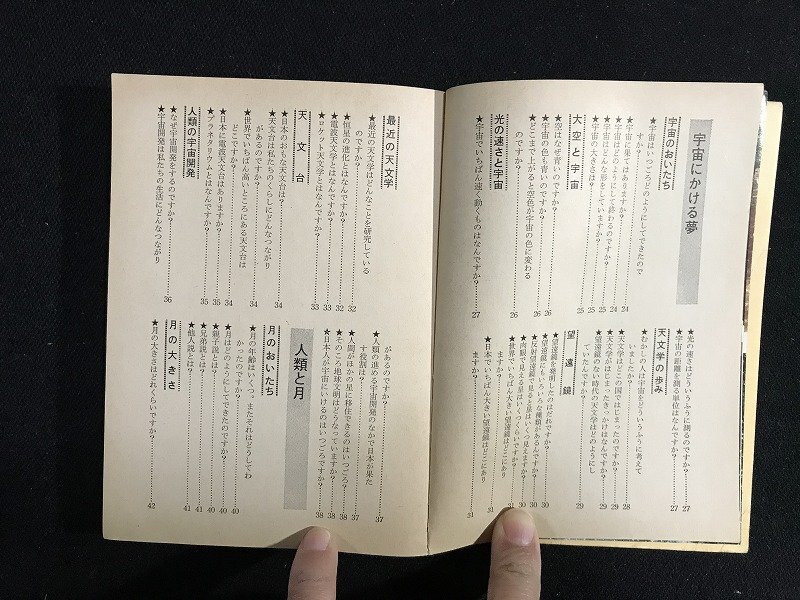 宇宙にかける夢
宇宙のおいたち
★宇宙はいつごろどのようにしてできたので
すか?……24
★宇宙に果てはありますか?……24
★宇宙はどんな形をしていますか?……25
★宇宙の大きさは?……25
大空と宇宙
★空はなぜ青いのですか?……26
★宇宙の色も青いのですか?……26
★どこまで上がると空色が宇宙の色に変わる
のですか?……26
光の速さと宇宙
★宇宙でいちばん速く動くものはなんですか?……27
★光の速さはどういうふうに測るのですか?……27
★宇宙の距離を測る単位はなんですか?……27
天文学の歩み
★むかしの人は宇宙をどういうふうに考えて
いましたか?……28
★天文学はどこの国ではじまったのですか?……29
★天文学がはじまったきっかけはなんですか?……29
★望遠鏡のない時代の天文学はどのようにし
ていたんですか?……29
望遠鏡
★望遠鏡を発明したのはだれですか?……30
★望遠鏡にもいろいろな種類があるんですか?……30
★反射望遠鏡で見ると星はいくつ見えますか?……30
★肉眼で見える星はいくつくらいですか?……30
★世界でいちばん大きい望遠鏡はどこにあり
ますか?……31
★日本でいちばん大きい望遠鏡はどこにあり
ますか?……31
最近の天文学
★最近の天文学はどんなことを研究している
のですか?……32
★恒星の進化とはなんですか?……32
★電波天文学とはなんですか?……33
★ロケット天文学とはなんですか?……33
天文台
★日本のおもな天文台は?……34
★天文台は私たちのくらしにどんなつながり
があるのですか?……34
★世界でいちばん高いところにある天文台は
どこですか?……34
★日本に電波天文台はありますか?……35
★プラネタリウムとはなんですか?……35
人類の宇宙開発
★なぜ宇宙開発をするのですか?……36
★宇宙開発は私たちの生活にどんなつながり
があるのですか?……37
★人類の進める宇宙開発のなかで日本が果た
す役割は?……37
★人間がほかの星に移住できるのはいつごろ?……38
★そのころ地球文明はどうなっていますか?……38
★日本人が宇宙にいけるのはいつごろですか?……38
人類と月
月のおいたち
★月の年齢はいくつ、またそれはどうしてわ
かったのですか?……40
★月はどのようにしてできたのですか?……40
★親子説とは?……40
★兄弟説とは?……41
★他人説とは?……41
月の大きさ
★月の大きさはどれくらいですか?……42